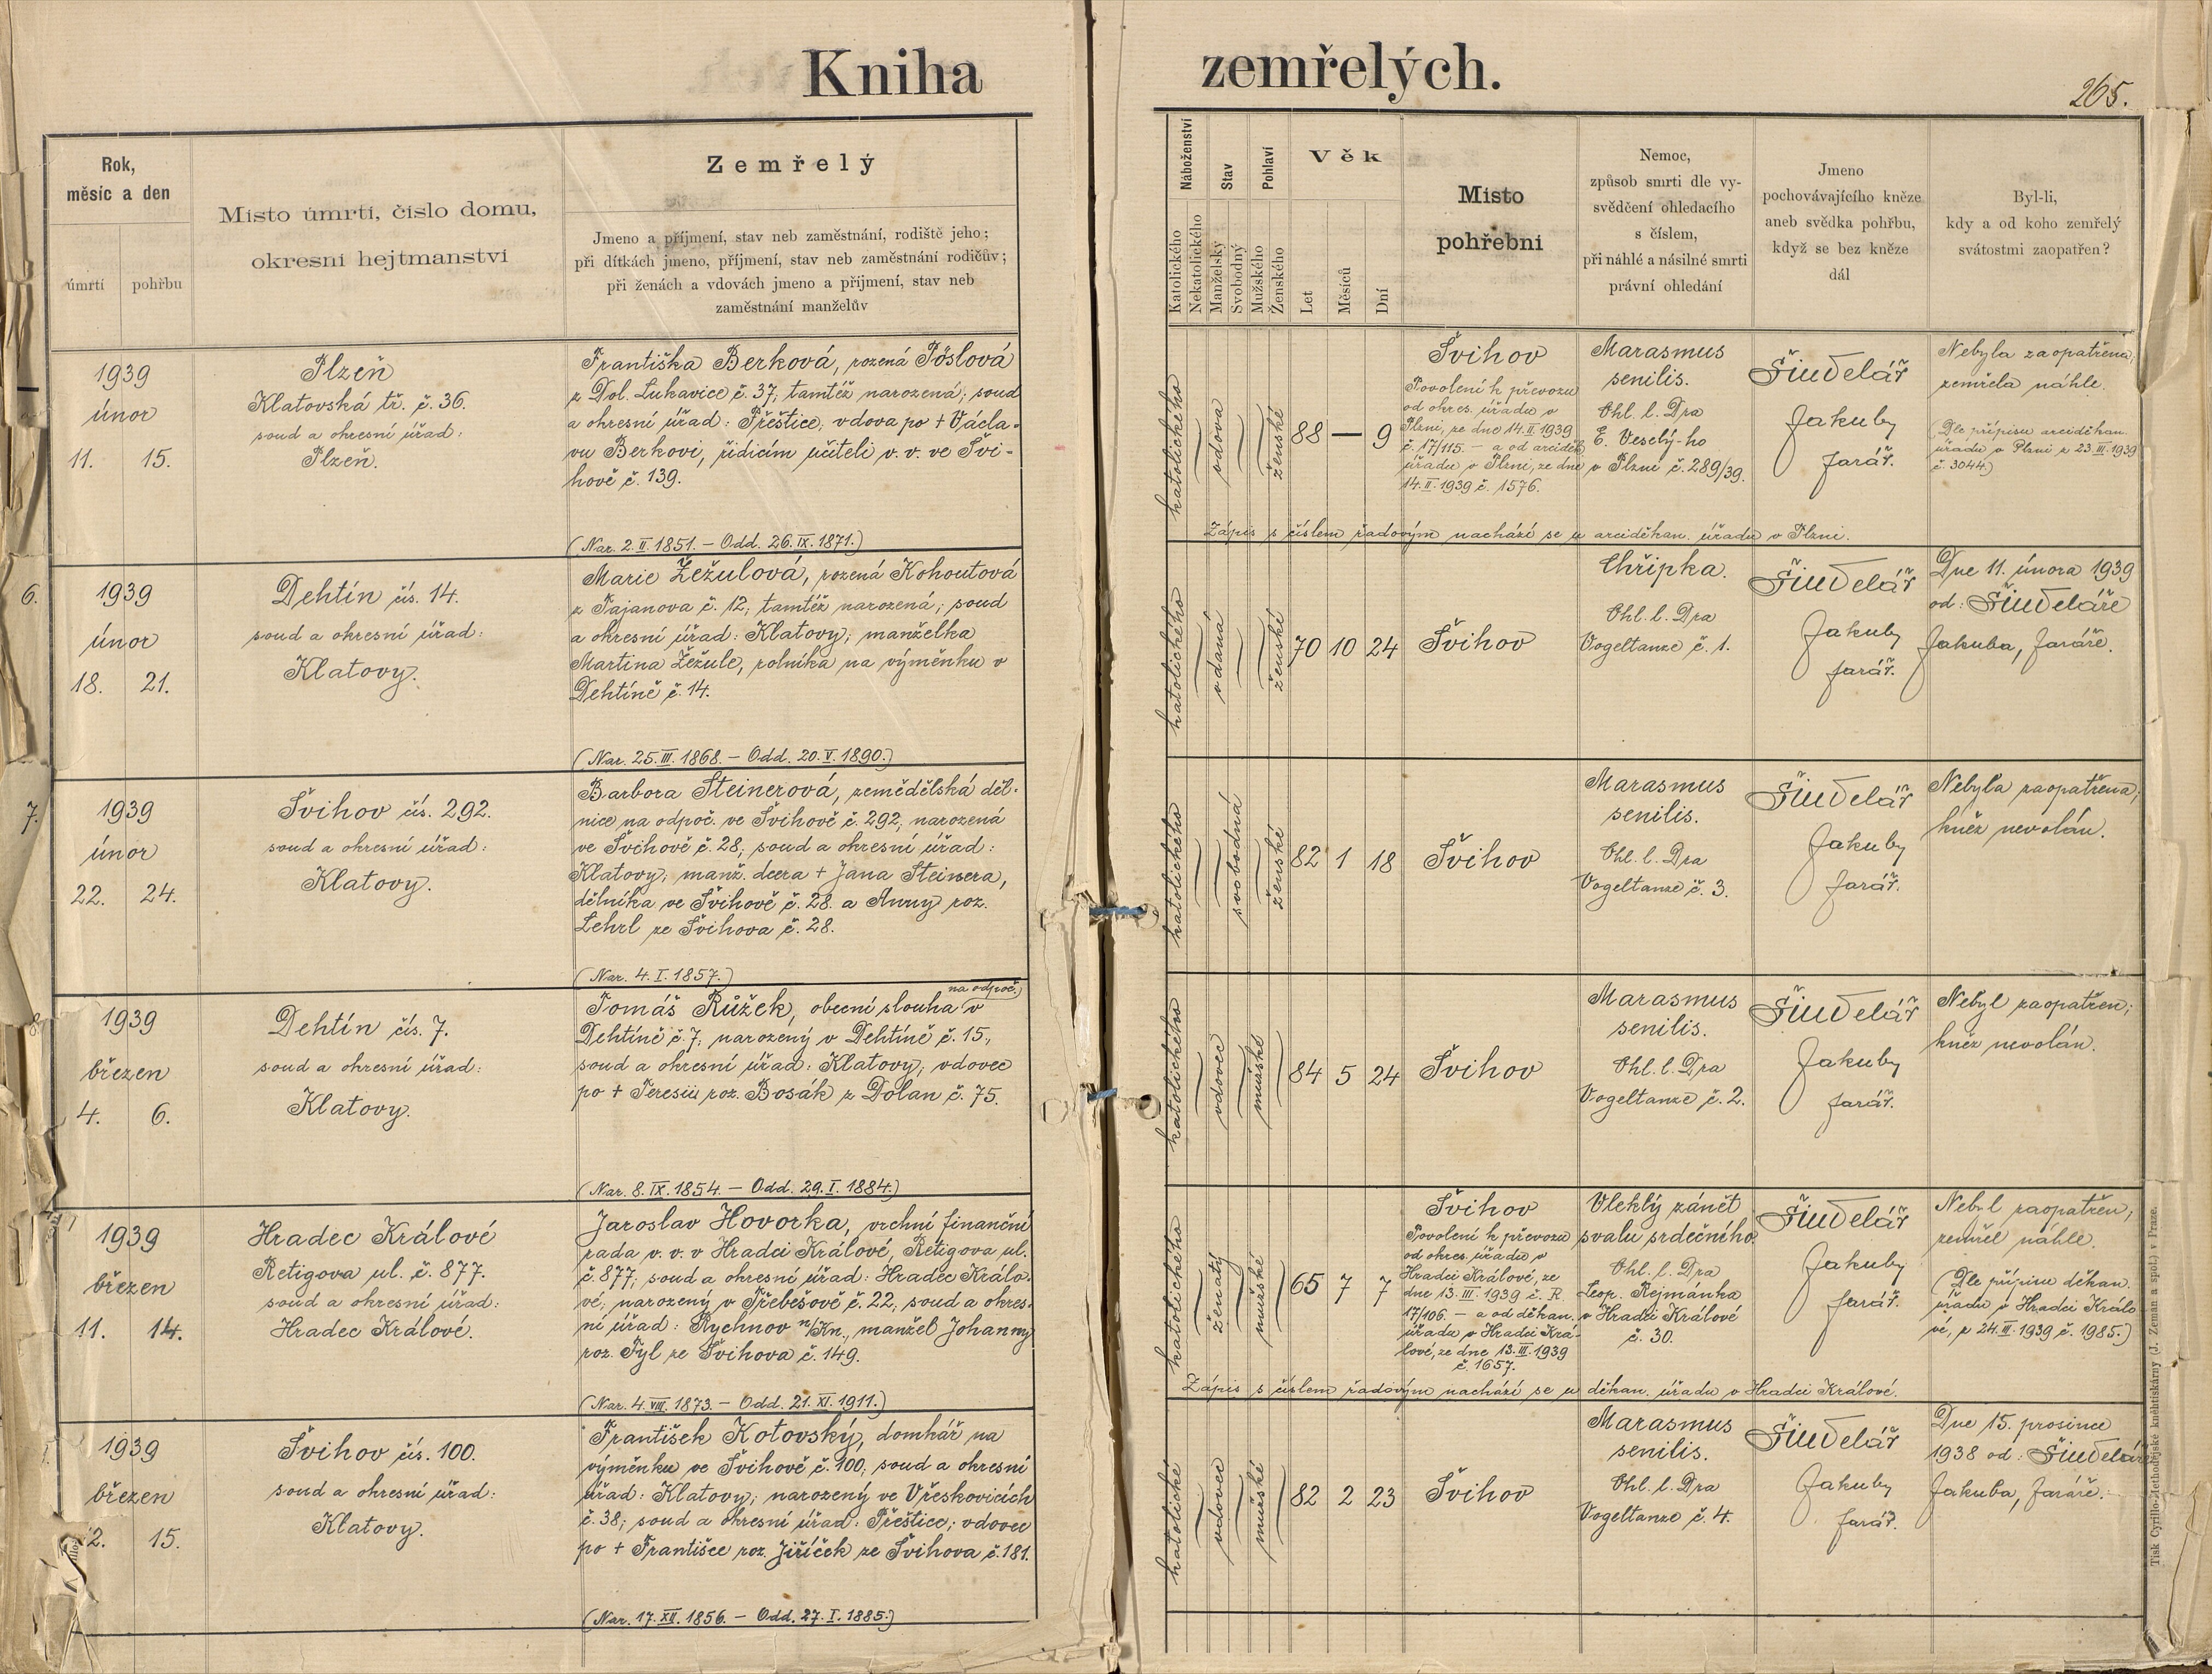 Kniha zemřelých.
265.
Rok,
měsíc a den
úmrtí
pohřbu
Místo úmrtí, číslo domu,
okresní hejtmanství
Zemřelý
Jmeno a příjmení, stav neb zaměstnání, rodiště jeho;
při dítkách jmeno, příjmení, stav neb zaměstnání rodičův;
při ženách a vdovách jmeno a příjmení, stav neb
zaměstnání manželův
Náboženství
Katolického
Nekatolického
Stav
Manželský
Svobodný
Pohlaví
Mužského
Ženského
Věk
Let
Měsíců
Dní
Místo
pohřební
Nemoc,
způsob smrti dle vy-
svědčení ohledacího
s číslem,
při náhlé a násilné smrti
právní ohledání
Jmeno
pochovávajícího kněze
aneb svědka pohřbu,
když se bez kněze
dál
Byl-li,
kdy a od koho zemřelý
svátostmi zaopatřen?
1939
únor
11. 15.
Plzeň
Klatovská tř. č. 36.
soud a okresní úřad:
Plzeň.
Františka Berková, rozená Pöslová
z Dol. Lukavice č. 37; tamtéž narozená; soud
a okresní úřad: Přeštice; vdova po + Václa-
vu Berkovi, řídícím učiteli v. v. ve Švi-
hově č. 139.
(Nar. 2. II. 1851. – Odd. 26. IX. 1871.)
katolického
vdova
ženské
88 — 9
Švihov
Povolení k převozu
od okres. úřadu v
Plzni, ze dne 14. II. 1939
č. 17/115. – a od arciděk.
úřadu v Plzni, ze dne
14. II. 1939 č. 1576.
Marasmus
senilis.
Ohl. l. Dra
E. Veselý-ho
v Plzni č. 289/39.
Šindelář
Jakub,
farář.
Nebyla zaopatřena;
zemřela náhle.
(Dle přípisu arciděkan.
úřadu v Plzni z 23. III. 1939
č. 3044.)
Zápis s číslem řadovým nachází se u arciděkan. úřadu v Plzni.
6.
1939
únor
18. 21.
Dehtín čís. 14.
soud a okresní úřad:
Klatovy.
Marie Žežulová, rozená Kohoutová
z Pajanova č. 12; tamtéž narozená; soud
a okresní úřad: Klatovy; manželka
Martina Žežule, rolníka na výměnku v
Dehtíně č. 14.
(Nar. 25. III. 1868. – Odd. 20. V. 1890.)
katolického
vdaná
ženské
70 10 24
Švihov
Chřipka.
Ohl. l. Dra
Vogeltanze č. 1.
Šindelář
Jakub,
farář.
Dne 11. února 1939
od: Šindeláře
Jakuba, faráře.
7.
1939
únor
22. 24.
Švihov čís. 292.
soud a okresní úřad:
Klatovy.
Barbora Steinerová, zemědělská děl-
nice na odpoč. ve Švihově č. 292; narozená
ve Švihově č. 28; soud a okresní úřad:
Klatovy; manž. dcera + Jana Steinera,
dělníka ve Švihově č. 28. a Anny roz.
Lehrl ze Švihova č. 28.
(Nar. 4. I. 1857.)
katolického
svobodná
ženské
82 1 18
Švihov
Marasmus
senilis.
Ohl. l. Dra
Vogeltanze č. 3.
Šindelář
Jakub,
farář.
Nebyla zaopatřena;
kněz nevolán.
8.
1939
březen
4. 6.
Dehtín čís. 7.
soud a okresní úřad:
Klatovy.
na odpoč.
Tomáš Růžek, obecní slouha v
Dehtíně č. 7; narozený v Dehtíně č. 15;
soud a okresní úřad: Klatovy; vdovec
po + Teresii roz. Bosák z Dolan č. 75.
(Nar. 8. IX. 1854. – Odd. 29. I. 1884.)
katolického
vdovec
mužské
84 5 24
Švihov
Marasmus
senilis.
Ohl. l. Dra
Vogeltanze č. 2.
Šindelář
Jakub,
farář.
Nebyl zaopatřen;
kněz nevolán.
1939
březen
11. 14.
Hradec Králové
Retigova ul. č. 877.
soud a okresní úřad:
Hradec Králové.
Jaroslav Hovorka, vrchní finanční
rada v. v. v Hradci Králové, Retigova ul.
č. 877; soud a okresní úřad: Hradec Králo-
vé; narozený v Třebešově č. 22; soud a okres-
ní úřad: Rychnov n/Kn., manžel Johanny
roz. Tyl ze Švihova č. 149.
(Nar. 4. VIII. 1873. – Odd. 21. XI. 1911.)
katolického
ženatý
mužské
65 7 7
Švihov
Povolení k převozu
od okres. úřadu v
Hradci Králové, ze
dne 13. III. 1939 č. R.
17/106. – a od děkan.
úřadu v Hradci Krá-
lové, ze dne 13. III. 1939
č. 1657.
Vleklý zánět
svalu srdečního.
Ohl. l. Dra
Leop. Rejmánka
v Hradci Králové
č. 30.
Šindelář
Jakub,
farář.
Nebyl zaopatřen;
zemřel náhle.
(Dle přípisu děkan.
úřadu v Hradci Králo
vé, z 24. III. 1939 č. 1985.)
Zápis s číslem řadovým nachází se u děkan. úřadu v Hradci Králové.
1939
březen
2. 15.
Švihov čís. 100.
soud a okresní úřad:
Klatovy.
František Kotovský, domkář na
výměnku ve Švihově č. 100; soud a okresní
úřad: Klatovy; narozený ve Vřeskovicích
č. 38; soud a okresní úřad: Přeštice; vdovec
po + Františce roz. Jiříček ze Švihova č. 181.
(Nar. 17. XII. 1856. – Odd. 27. I. 1885.)
katolické
vdovec
mužské
82 2 23
Švihov
Marasmus
senilis.
Ohl. l. Dra
Vogeltanze č. 4.
Šindelář
Jakub,
farář.
Dne 15. prosince
1938 od: Šindeláře
Jakuba, faráře.
Tisk Cyrillo-Methodějské knihtiskárny (J. Zeman a spol.) v Praze.